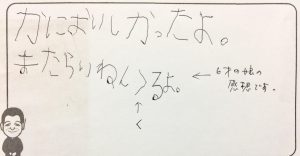 かにおいしかったよ。
またらいねんくるよ。 ← 6才の娘の
感想です。
↑
く